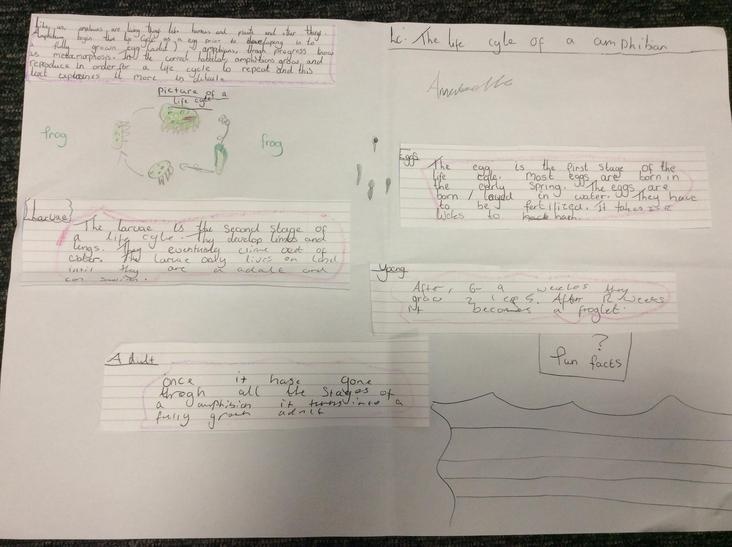 Lc: The life cycle of a amphiban
living things like humans and plants and other things.
begin life cycle as a egg prior to in to
a fully grown egg (adult) progress
as metamorphosis. In the correct habitat, amphibians grow and
reproduce in order for a life cycle to repeat and this
text explaines it more in
picture of a
life cycle
frog
frog
Eggs
The egg is the first stage of the
life cycle. Most eggs are born in
the early spring. The eggs are
born / layed in water. They have
to be fertilized. It takes
weeks to hach.
Larvae
The larvae is the second stage of
a life cycle. They develop limbs and
lungs. They eventually clime out of
water. The larvae only lives on land
until they are a adult and
can
Young
After, 6-9 weekes they
grow 2 legs. After 12 weeks
it becomes a froglet.
Adult
once it hase gone
throgh all the stages of
a amphibian it turns into a
fully grown adult
?
fun facts